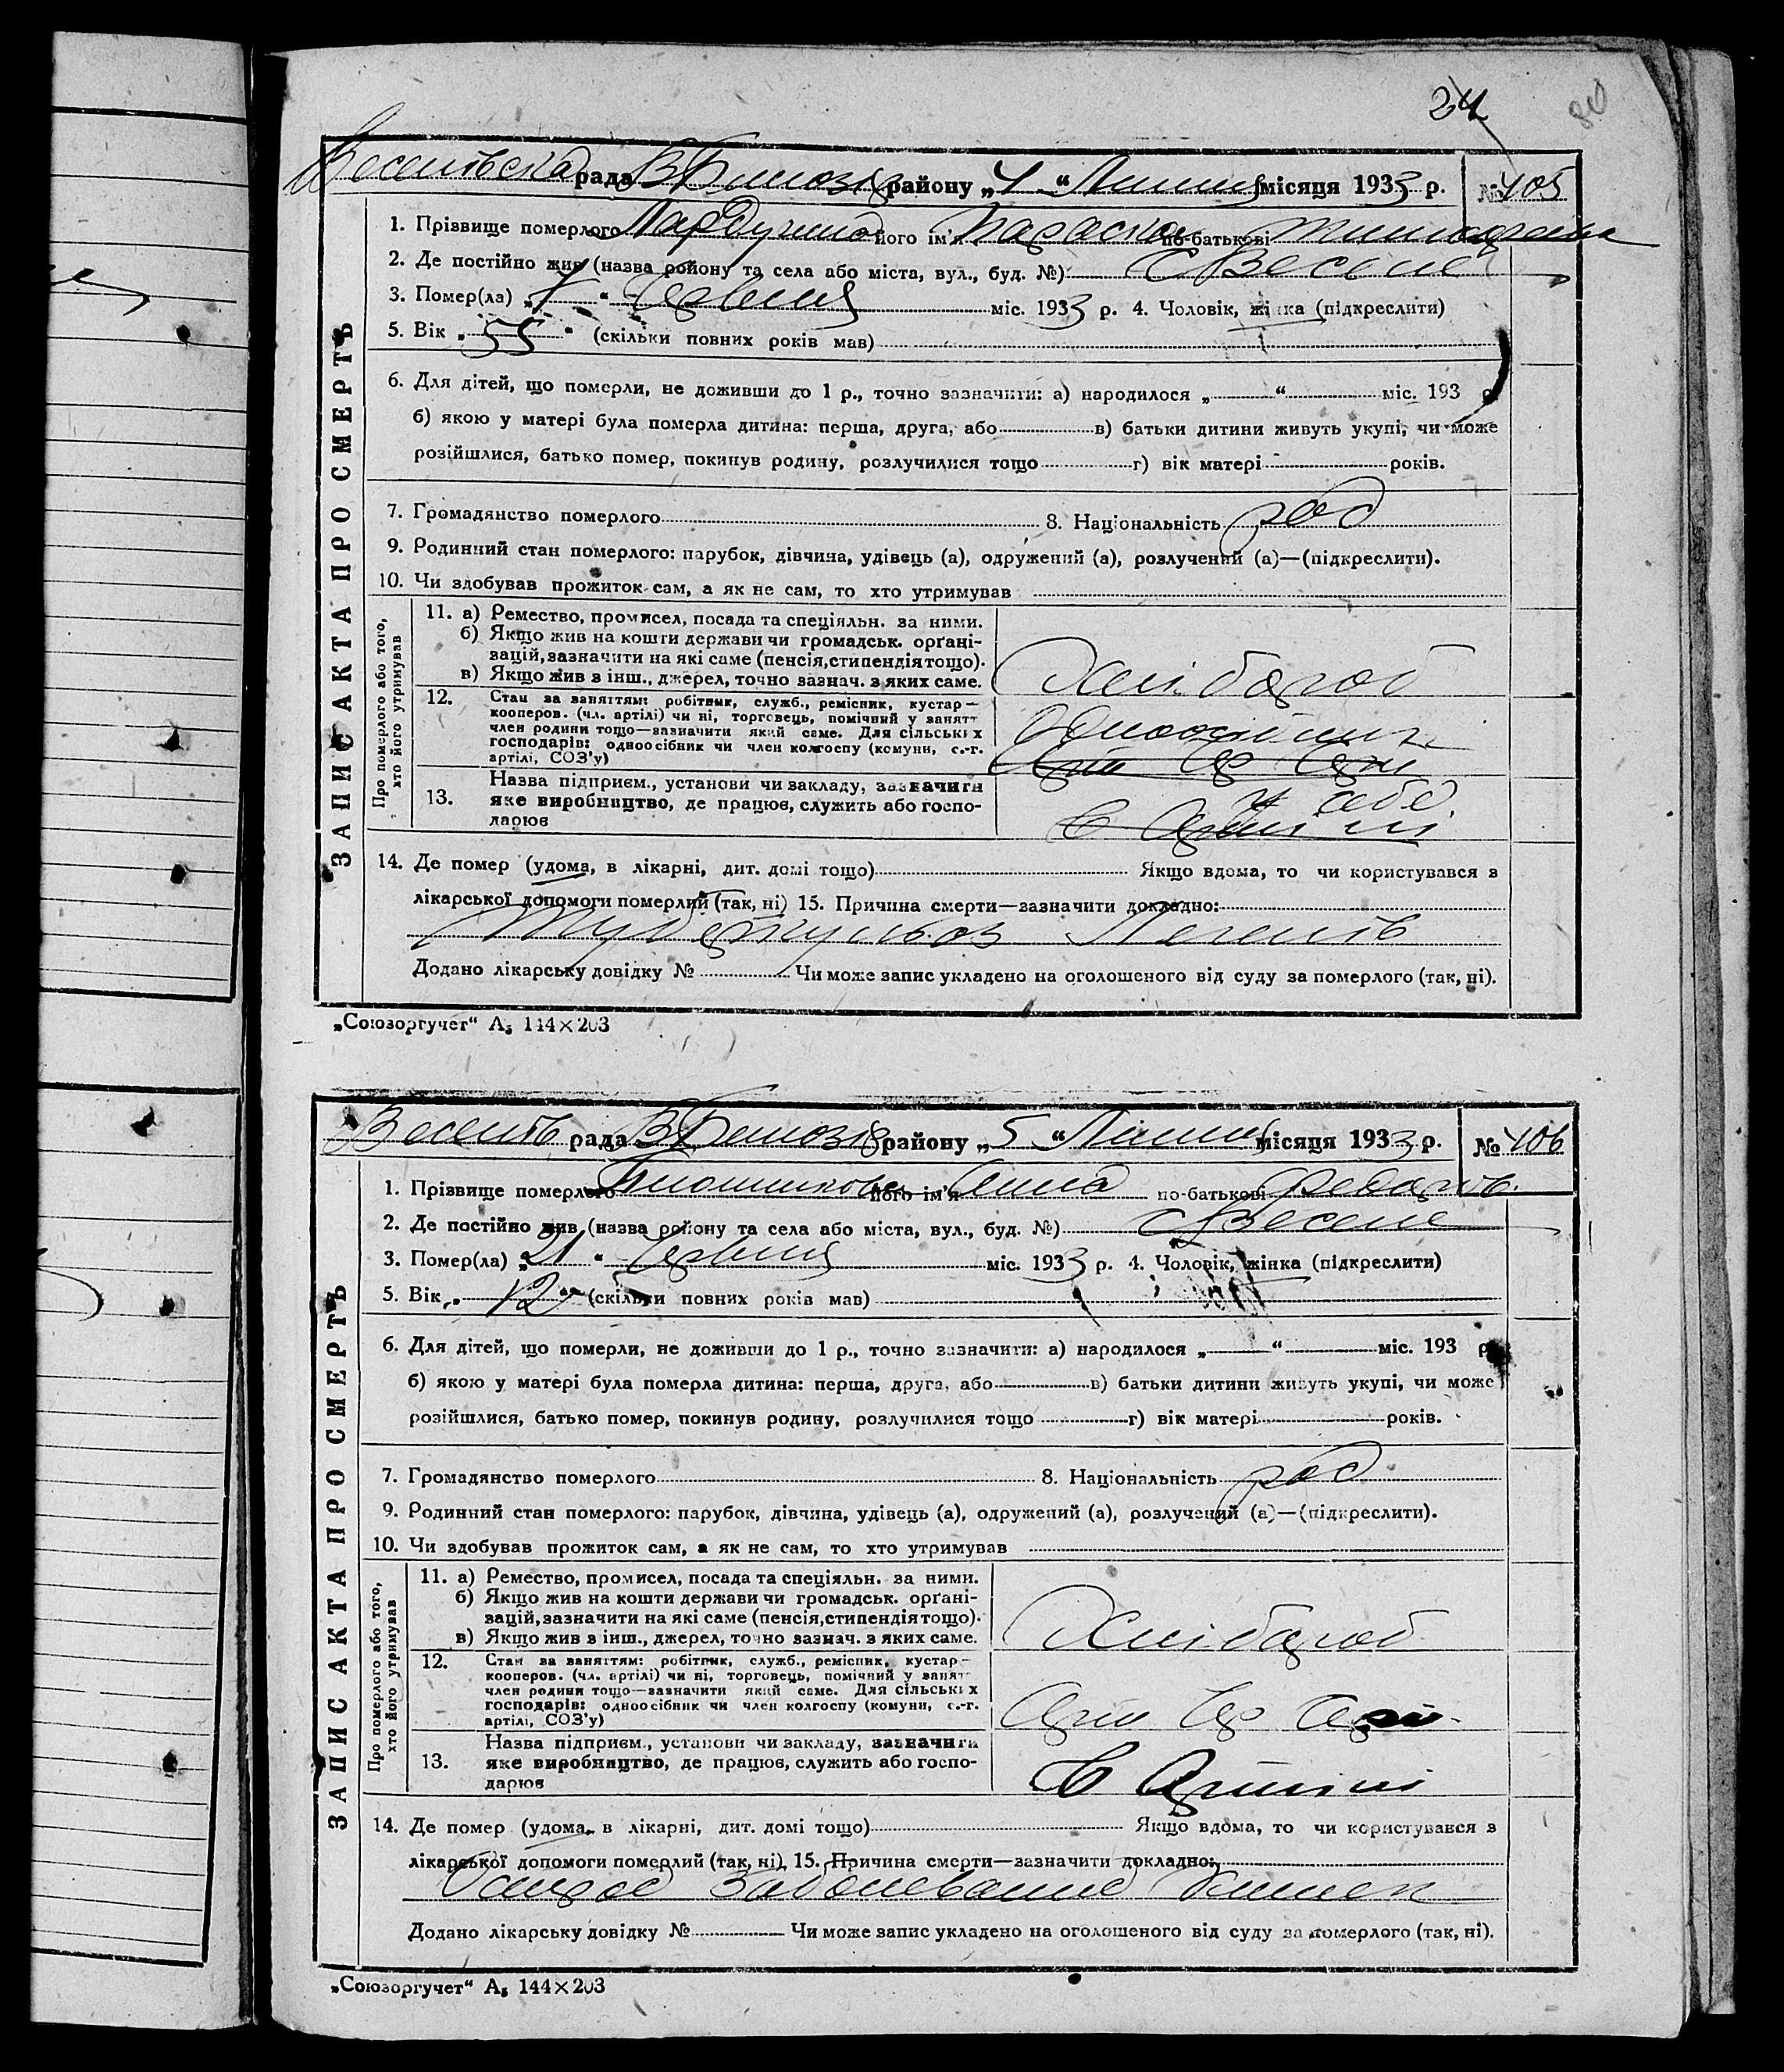 24
80
рада В районУ „4“ Липня місяця 1933 р. № 105
1. Прізвище померлого його ім'я Параска по-батькові
2. Де постійно жив (назва району та села або міста, вул., буд. №) С Веселе
3. Помер(ла) „ “ Червня міс. 1933 р. 4. Чоловік, жінка (підкреслити)
5. Вік „55“ (скільки повних років мав)
6. Для дітей, що померли, не доживши до 1 р., точно зазначити: а) народилося „ “ міс. 193 р.
б) якою у матері була померла дитина: перша, друга, або в) батьки дитини живуть укупі, чи може
розійшлися, батько помер, покинув родину, розлучилися тощо г) вік матері років.
7. Громадянство померлого 8. Національність рос
9. Родинний стан померлого: парубок, дівчина, удівець (а), одружений (а), розлучений (а)—(підкреслити).
10. Чи здобував прожиток сам, а як не сам, то хто утримував
ЗАПИС АКТА ПРО СМЕРТЬ
Про померлого або того,
хто його утримував
11. а) Ремество, промисел, посада та спеціяльн. за ними.
б) Якщо жив на кошти держави чи громадськ. орґані-
зацій, зазначити на які саме (пенсія, стипендія тощо).
в) Якщо жив з інш., джерел, точно зазнач. з яких саме.
Хлібороб
12. Стан за заняттям: робітник, служб., ремісник, кустар—
кооперов. (чл. артілі) чи ні, торговець, помічний у занятт
член родини тощо—зазначити який саме. Для сільських
господарів: одноосібник чи член колгоспу (комуни, с.-г.
артілі, СОЗ'у)
Одноосібник
13. Назва підприєм., установи чи закладу, зазначити
яке виробництво, де працює, служить або госпо-
дарює
у себе
в Артілі
14. Де помер (удома, в лікарні, дит. домі тощо) Якщо вдома, то чи користувався з
лікарської допомоги померлий (так, ні) 15. Причина смерти—зазначити докладно:
Туберкульоз Легенів
Додано лікарську довідку № Чи може запис укладено на оголошеного від суду за померлого (так, ні).
„Союзоргучет“ А₅ 144×203
рада В району „5“ Липня місяця 1933 р. № 106
1. Прізвище померлого його ім'я Анна по-батькові
2. Де постійно жив (назва району та села або міста, вул., буд. №) С Веселе
3. Помер(ла) „21“ Червня міс. 1933 р. 4. Чоловік, жінка (підкреслити)
5. Вік „12“ (скільки повних років мав)
6. Для дітей, що померли, не доживши до 1 р., точно зазначити: а) народилося „ “ міс. 193 р.
б) якою у матері була померла дитина: перша, друга, або в) батьки дитини живуть укупі, чи може
розійшлися, батько помер, покинув родину, розлучилися тощо г) вік матері років.
7. Громадянство померлого 8. Національність рос
9. Родинний стан померлого: парубок, дівчина, удівець (а), одружений (а), розлучений (а)—(підкреслити).
10. Чи здобував прожиток сам, а як не сам, то хто утримував
ЗАПИС АКТА ПРО СМЕРТЬ
Про померлого або того,
хто його утримував
11. а) Ремество, промисел, посада та спеціяльн. за ними.
б) Якщо жив на кошти держави чи громадськ. орґані-
зацій, зазначити на які саме (пенсія, стипендія тощо).
в) Якщо жив з інш., джерел, точно зазнач. з яких саме.
Хлібороб
12. Стан за заняттям: робітник, служб., ремісник, кустар—
кооперов. (чл. артілі) чи ні, торговець, помічний у занятт
член родини тощо—зазначити який саме. Для сільських
господарів: одноосібник чи член колгоспу (комуни, с.-г.
артілі, СОЗ'у)
13. Назва підприєм., установи чи закладу, зазначити
яке виробництво, де працює, служить або госпо-
дарює
в Артілі
14. Де помер (удома, в лікарні, дит. домі тощо) Якщо вдома, то чи користувався з
лікарської допомоги померлий (так, ні) 15. Причина смерти—зазначити докладно:
Заболевание Кишек
Додано лікарську довідку № Чи може запис укладено на оголошеного від суду за померлого (так, ні).
„Союзоргучет“ А₅ 144×203